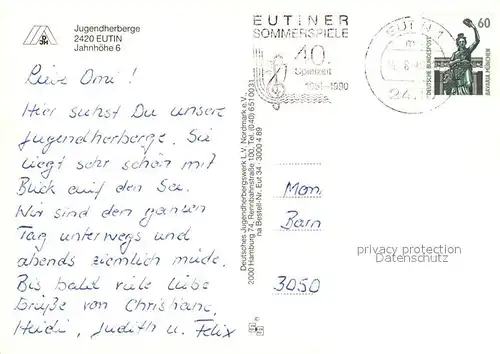 Jugendherberge
2420 EUTIN
Jahnhöhe 6
EUTINER
SOMMERSPIELE
40.
Spielzeit
1951-1990
EUTIN 1
60
DEUTSCHE BUNDESPOST
BAVARIA MÜNCHEN
Liebe Omi!
Hier siehst Du unsere
Jugendherberge. Sie
liegt sehr schön mit
Blick auf den See.
Wir sind den ganzen
Tag unterwegs und
abends ziemlich müde.
Bis bald viele liebe
Grüße von Christiane,
Heidi, Judith u. Felix
Deutsches Jugendherbergswerk L.V. Nordmark e.V.
2000 Hamburg 74, Rennbahnstraße 100, Tel. (040) 6510031
na Bestell-Nr. Eut 34 - 3000 4 89
Mon
Barn
3050
privacy protection
Datenschutz